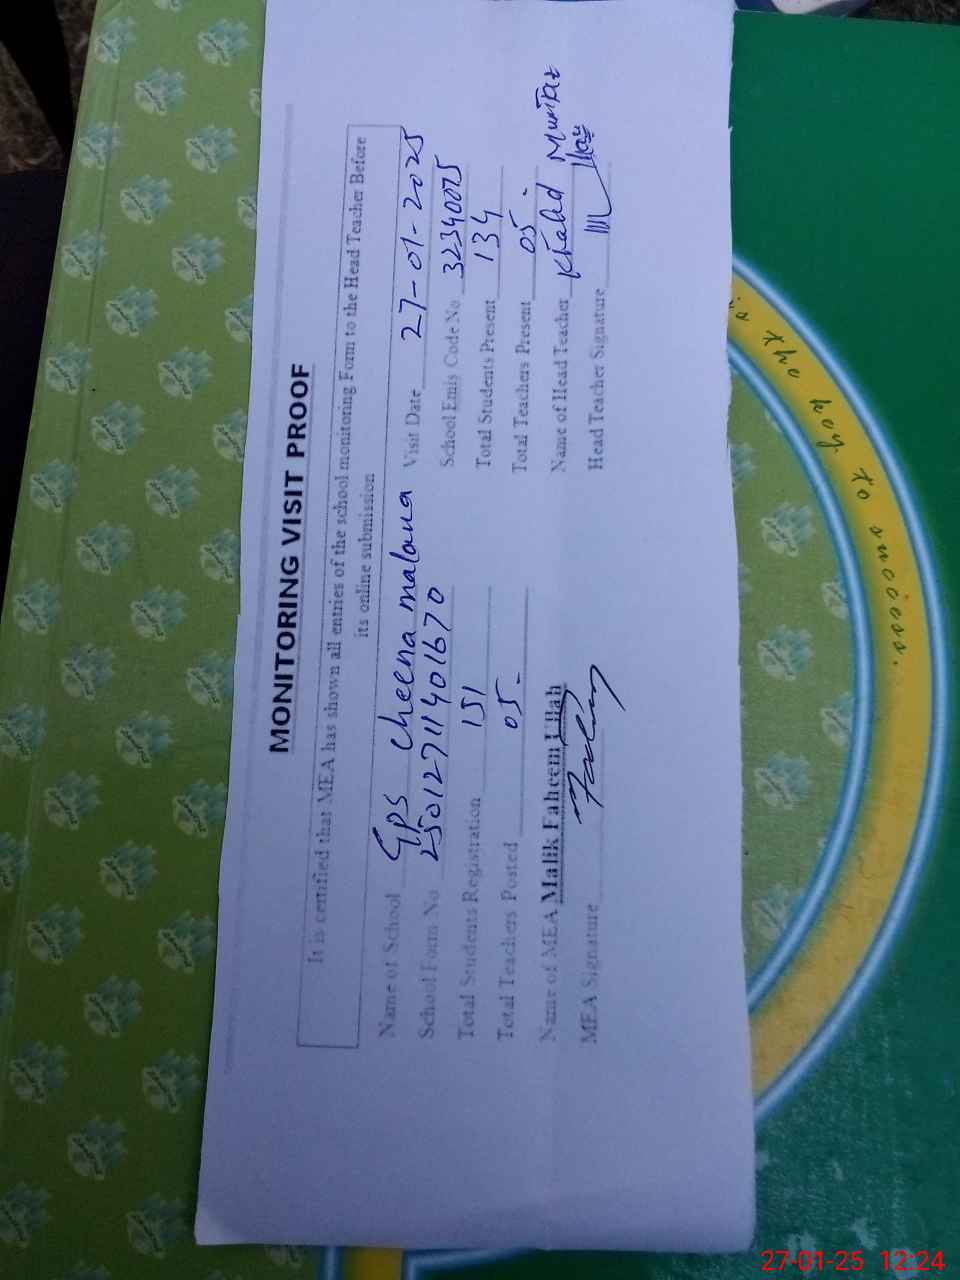 MONITORING VISIT PROOF
It is certified that MEA has shown all entries of the school monitoring Form to the Head Teacher Before
its online submission
Name of School GPS cheena malana Visit Date 27-01-2025
School Form No 25012711401670 School Emis Code No 32340025
Total Students Registration 151 Total Students Present 134
Total Teachers Posted 05- Total Teachers Present 05-
Name of MEA Malik Faheem Ullah Name of Head Teacher Khalid
MEA Signature Head Teacher Signature
success.
27-01-25 12:24